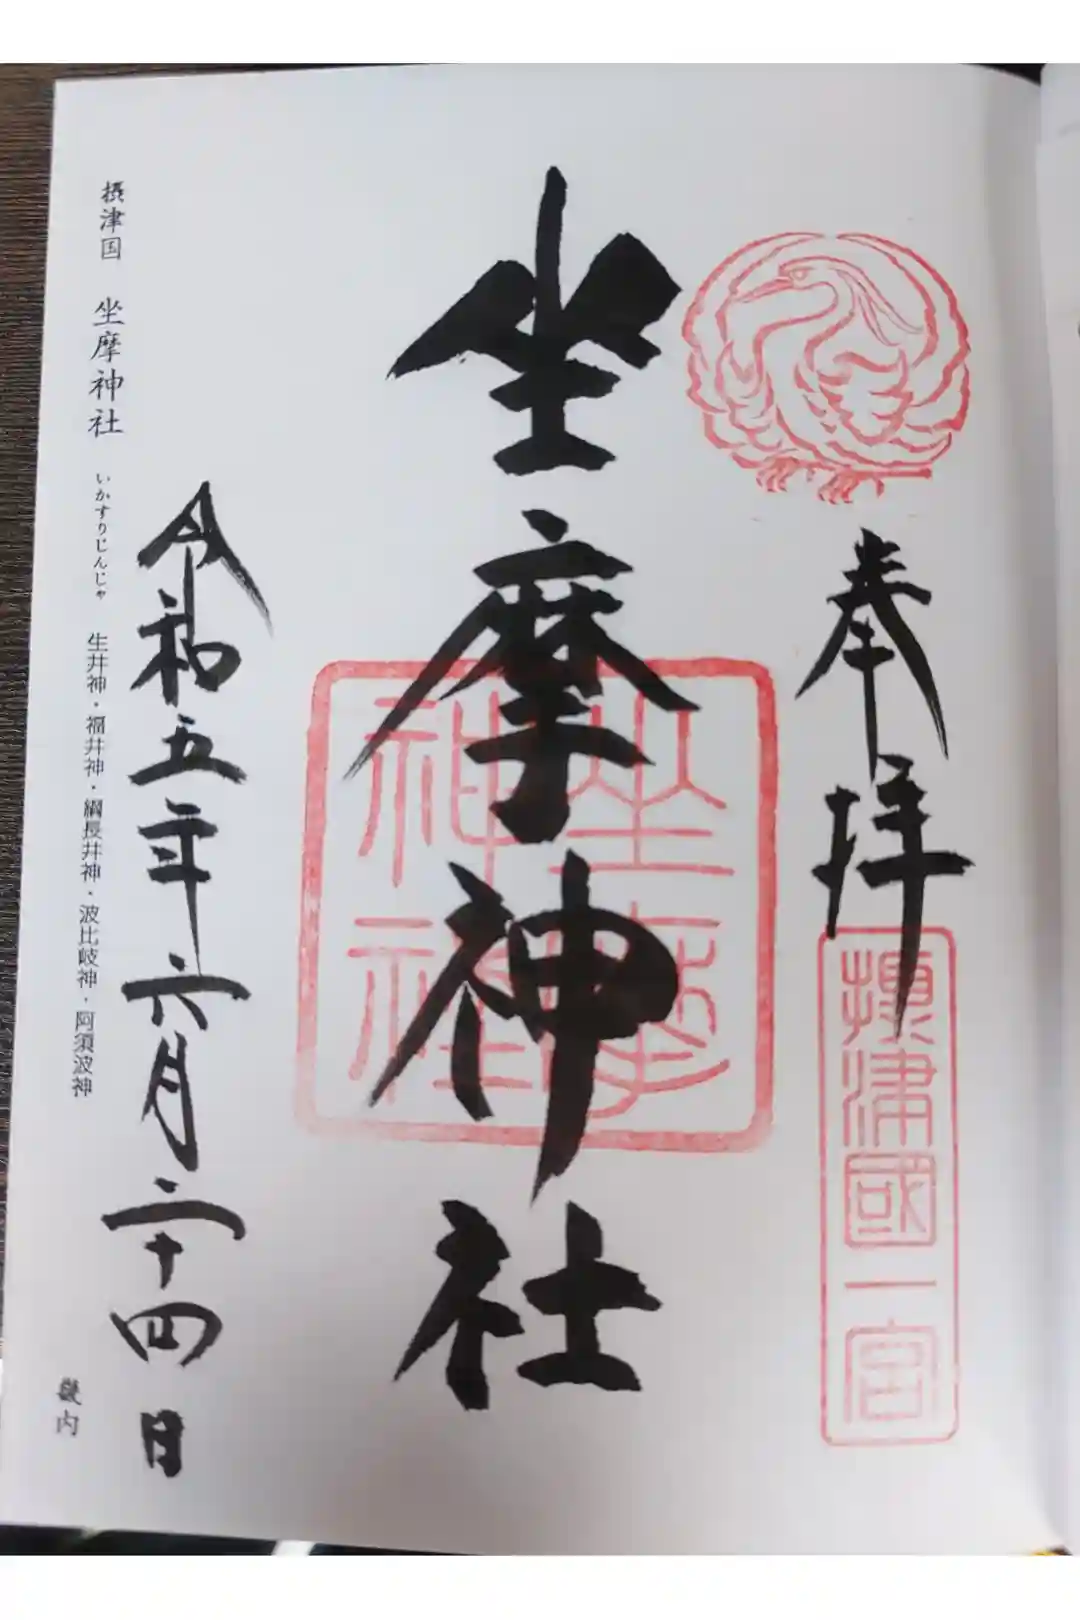 奉拝
摂津國一宮
坐摩神社
坐摩神社
令和五年六月二十四日
摂津国 坐摩神社 いかすりじんじゃ 生井神・福井神・綱長井神・波比岐神・阿須波神
畿内